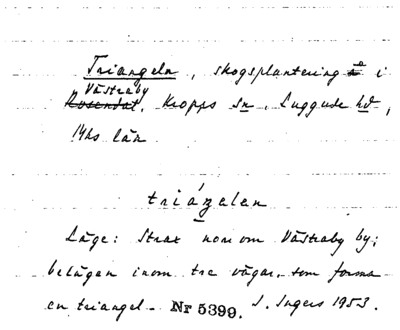 Triangeln, skogsplantering i
Västraby
Rosendal, Kropps sn, Luggude hd,
Mhs län
triáŋelən
Läge: Strax norr om Västraby by;
belägen inom tre vägar, som forma
en triangel. Nr 5399. I. Ingers 1953.